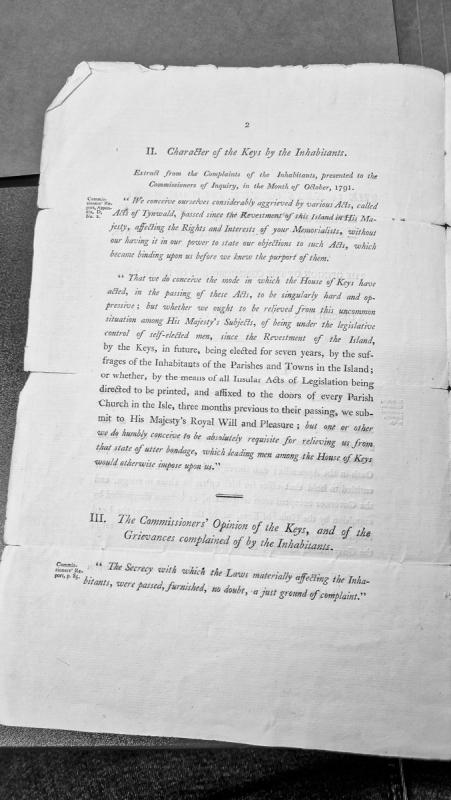 2
II. Character of the Keys by the Inhabitants.
Extract from the Complaints of the Inhabitants, presented to the
Commissioners of Inquiry, in the Month of October, 1791.
Commis-
sioners' Re-
port, Appen-
dix, D,
No. 2.
" We conceive ourselves considerably aggrieved by various Acts, called
Acts of Tynwald, passed since the Revestment of this Island in His Ma-
jesty, affecting the Rights and Interests of your Memorialists, without
our having it in our power to state our objections to such Acts, which
became binding upon us before we knew the purport of them.
" That we do conceive the mode in which the House of Keys have
acted, in the passing of these Acts, to be singularly hard and op-
pressive; but whether we ought to be relieved from this uncommon
situation among His Majesty's Subjects, of being under the legislative
control of self-elected men, since the Revestment of the Island,
by the Keys, in future, being elected for seven years, by the suf-
frages of the Inhabitants of the Parishes and Towns in the Island;
or whether, by the means of all Insular Acts of Legislation being
directed to be printed, and affixed to the doors of every Parish
Church in the Isle, three months previous to their passing, we sub-
mit to His Majesty's Royal Will and Pleasure; but one or other
we do humbly conceive to be absolutely requisite for relieving us from
that state of utter bondage, which leading men among the House of Keys
would otherwise impose upon us."
III. The Commissioners' Opinion of the Keys, and of the
Grievances complained of by the Inhabitants.
Commis-
sioners' Re-
port, p. 85.
" The Secrecy with which the Laws materially affecting the Inha-
bitants, were passed, furnished, no doubt, a just ground of complaint."